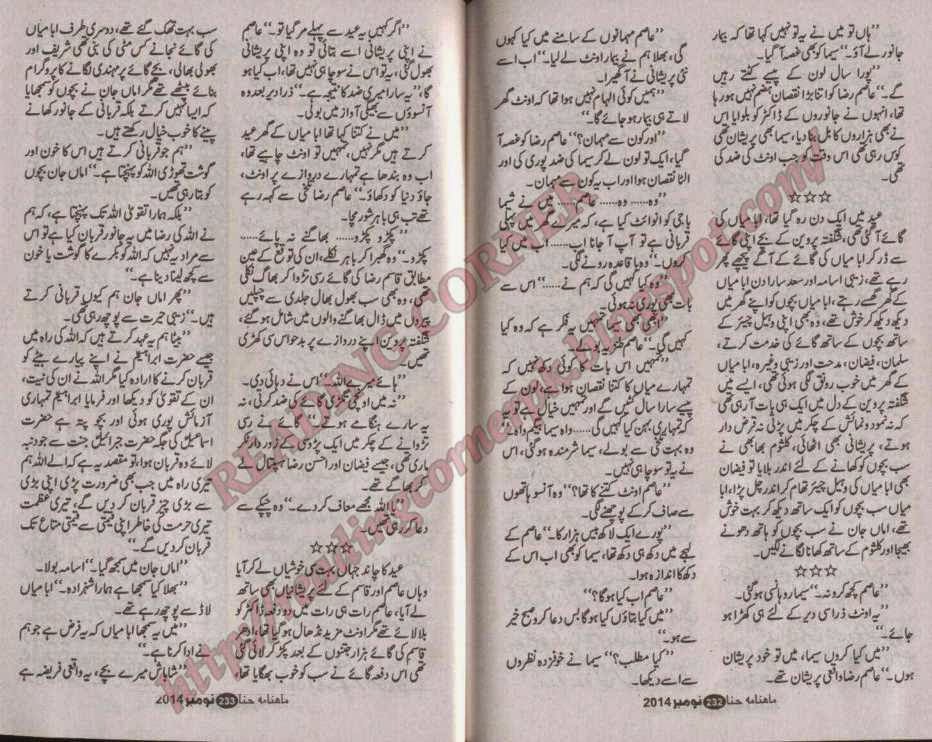 ”ہاں تو میں نے یہ تو نہیں کہا تھا کہ بیمار
جانور لے آؤ۔“ سیما کو بھی غصہ آ گیا۔
”پورا سال لون کے پیسے کٹتے رہیں
گے۔“ عاصم رضا کو اتنا بڑا نقصان ہضم نہیں ہو رہا
تھا، انہوں نے جانوروں کے ڈاکٹر کو بلوایا اس
نے بھی ہزاروں کا بل بنا دیا، سیما بھی پریشان تھی
کوس رہی تھی اس وقت کو جب اونٹ کی ضد کی
تھی۔
☆☆☆
عید میں ایک دن رہ گیا تھا، ابا میاں کی
گائے آ گئی تھی، شگفتہ پروین کے بچے اپنی گائے
سے ڈر کر ابا میاں کی گائے کے آگے پیچھے پھر
رہے تھے، زینی اسامہ اور سعد سارا دن ابا میاں
کے گھر گھسے رہتے، ابا میاں بچوں کو اپنے گھر میں
دیکھ دیکھ کر خوش تھے، وہ بھی اپنی وہیل چیئر کے
ساتھ بچوں کے ساتھ گائے کی خدمت کرتے،
سلمان، فیضان، مدحت اور زینی وغیرہ، ابا میاں
کے گھر میں خوب رونق لگی ہوئی تھی، ایسے میں
شگفتہ پروین کے دل میں ایک ہی بات آ رہی تھی
کہ نہ نمود و نمائش کے چکر میں پڑتی نہ قرض دار
ہوتے، پریشانی بھی اٹھائی، کلثوم بھابھی نے
سب بچوں کو کھانے کے لئے اندر بلایا تو فیضان
بھی ابا میاں کی وہیل چیئر تھام کر اندر چل پڑا، ابا
میاں سب بچوں کو ایک ساتھ دیکھ کر بہت خوش
تھے، اماں جان نے سب بچوں کو ہاتھ دھونے
بھیجا اور کلثوم کے ساتھ کھانا لگانے لگیں۔
☆☆☆
”عاصم کچھ کرو نہ۔“ سیما روہانسی ہو گئی۔
”یہ اونٹ ذرا سی دیر کے لئے ہی کھڑا ہو
جائے۔“
”میں کیا کروں سیما، میں تو خود پریشان
ہوں۔“ عاصم رضا واقعی پریشان تھے۔
”عاصم مہمانوں کے سامنے میں کیا کہوں
گی، بھلا ہم نے بیمار اونٹ لے لیا۔“ اب اسے
نئی پریشانی نے آ گھیرا۔
”ہمیں کوئی الہام نہیں ہوا تھا کہ اونٹ گھر
لاتے ہی بیمار ہو جائے گا۔“
”اور کون سے مہمان؟“ عاصم رضا کو غصہ آ
گیا، ایک تو لون لے کر سیما کی ضد پوری کی اور
الٹا نقصان ہوا اور اب یہ کون سے مہمان۔
”وہ...... وہ...... عاصم...... میں نے شیما
باجی کو انوائٹ کیا ہے، کہ میرے گھر میں پہلی
قربانی ہے تو آپ آ جانا اب...... اب میں کیا
کروں۔“ وہ باقاعدہ رونے لگی۔
”وہ کیا کہیں گی کہ ہم نے......“ اس سے
بات بھی پوری نہ ہوئی۔
”ابھی بھی سیما تمہیں یہ فکر ہے کہ وہ کیا
کہیں گی۔“ عاصم طنزیہ
”تمہیں اس بات کا کوئی دکھ نہیں کہ
تمہارے میاں کا کتنا نقصان ہوا ہے، لون کے
پیسے سارا سال کٹیں گے اور تمہیں خیال ہے تو یہ
کہ تمہاری بہن کیا کہیں گی...... واہ سیما بیگم واہ۔“
وہ بہت دکھ سے بولے، سیما شرمندہ ہو گئی، اس
نے یہ تو سوچا ہی نہیں۔
”عاصم اونٹ کتنے کا تھا؟“ وہ آنسو ہاتھوں
سے صاف کر کے پوچھنے لگی۔
”پورے ایک لاکھ بیس ہزار کا۔“ عاصم کے
لہجے میں دکھ ہی دکھ تھا، سیما کو بھی اب اس کے
دکھ کا اندازہ ہوا۔
”عاصم اب کیا ہوگا؟“
”میں کیا بتاؤں کیا ہوگا بس دعا کرو صبح خیر
سے ہو۔“
”کیا مطلب؟“ سیما نے خوفزدہ نظروں
سے اسے دیکھا۔
ماہنامہ حنا 232 نومبر 2014
”اگر کہیں یہ عید سے پہلے مر گیا تو۔“ عاصم
نے اپنی پریشانی اسے بتائی تو وہ اپنی پریشانی
بھول گئی، یہ تو اس نے سوچا ہی نہیں تھا، اب کیا ہو گا
”یہ سارا میری ضد کا نتیجہ ہے۔“ ذرا دیر بعد وہ
آنسوؤں سے بھیگی آواز میں بولی۔
”میں نے کتنا کہا تھا ابا میاں کے گھر عید
کرتے ہیں مگر نہیں، تمہیں تو اونٹ چاہیے تھا،
اب وہ بندھا ہے تمہارے دروازے پر اونٹ،
جاؤ دنیا کو دکھاؤ۔“ عاصم رضا تلخی سے کہہ رہے
تھے تب ہی باہر شور مچا۔
”پکڑو پکڑو...... بھاگنے نہ پائے......
پکڑو۔“ وہ گھبرا کر باہر نکلے، ان کی توقع کے عین
مطابق قاسم رضا کی گائے رسی تڑوا کر بھاگ نکلی
تھی، وہ بھی سب بھول بھال جلدی سے چپلیں
پیروں میں ڈال بھاگنے والوں میں شامل ہو گئے،
شگفتہ پروین اپنے دروازے پر بدحواس سی کھڑی
تھیں۔
”ہائے میرے اللہ۔“ اس نے دہائی دی۔
”نہ میں اونچی تگڑی گائے کی ضد کرتی، نہ
یہ سارے ہنگامے ہوتے۔“ گائے نے رسی
تڑوانے کے چکر میں ایک پڑوسی کے زور دار ٹکر
ماری تھی، جیسے فیضان اور احسن رضا ہسپتال لے
کر بھاگے تھے۔
”یا اللہ مجھے معاف کر دے۔“ وہ چپکے سے
دعا کر رہی تھیں۔
☆☆☆
عید کا چاند جہاں بہت سی خوشیاں لے کر آیا
وہاں عاصم اور قاسم کے لئے پریشانیاں بھی ساتھ
لے آیا، عاصم رات ہی رات میں دو دفعہ ڈاکٹر کو
بلا لائے تھے مگر اونٹ مزید نڈھال ہو گیا تھا، ادھر
قاسم کی گائے ہزار جتنوں کے بعد پکڑ کر لائی گئی
تھی اس دفعہ گائے نے سب کو خوب بھگایا تھا،
سب بہت تھک گئے تھے، دوسری طرف ابا میاں
کی گائے نجانے کس مٹی کی بنی تھی شریف اور
بھولی بھالی، بچے گائے پر مہندی لگانے کا پروگرام
بنائے بیٹھے تھے مگر اماں جان نے بچوں کو سمجھایا
کہ ایسا نہیں کرتے بلکہ قربانی کے جانور کھانے
پینے کا خوب خیال رکھتے ہیں۔
”ہم جو قربانی کرتے ہیں اس کا خون اور
گوشت تھوڑی اللہ کو پہنچتا ہے۔“ اماں جان بچوں
کو بتا رہی تھیں۔
”بلکہ ہمارا تقویٰ اللہ تک پہنچتا ہے، کہ ہم
نے اللہ کی رضا میں یہ جانور قربان کیا ہے تو اس
سے مراد یہ نہیں کہ اللہ کو بکرے کا گوشت یا خون
سے کچھ لینا دینا ہے۔“
”پھر اماں جان ہم کیوں قربانی کرتے
ہیں۔“ زینی حیرت سے پوچھ رہی تھی۔
”بیٹا ہم یہ عہد کرتے ہیں کہ اللہ کی راہ میں
جیسے حضرت ابراہیم نے اپنے پیارے بیٹے کو
قربان کرنے کا ارادہ کیا مگر اللہ نے ان کی نیت،
ان کے تقویٰ کو دیکھا اور فرمایا ابراہیم تمہاری
آزمائش پوری ہوئی اور بچو پتہ ہے حضرت
اسماعیل کی جگہ حضرت جبرائیل جنت سے جو دنبہ
لائے وہ قربان ہوا، تو مقصد یہ ہے کہ اے اللہ ہم
تیری راہ میں جب بھی ضرورت پڑی اپنی بڑی
سے بڑی چیز قربان کر دیں گے، تیری عظمت
تیری حرمت کی خاطر اپنی قیمتی سے قیمتی متاع تک
قربان کر دیں گے۔“
”اماں جان میں سمجھ گیا۔“ اسامہ بولا۔
”بھلا کیا سمجھا ہے ہمارا شہزادہ۔“ ابا میاں
لاڈ سے پوچھ رہے تھے۔
”میں یہ سمجھا ابا میاں کہ یہ فرض ہے جو ہم
نے ادا کرنا ہے۔“
”شاباش میرے بچے، یہ واقعی فریضہ ہے
ماہنامہ حنا 233 نومبر 2014
READING CORNER
http://readingcornerpk.blogspot.com/